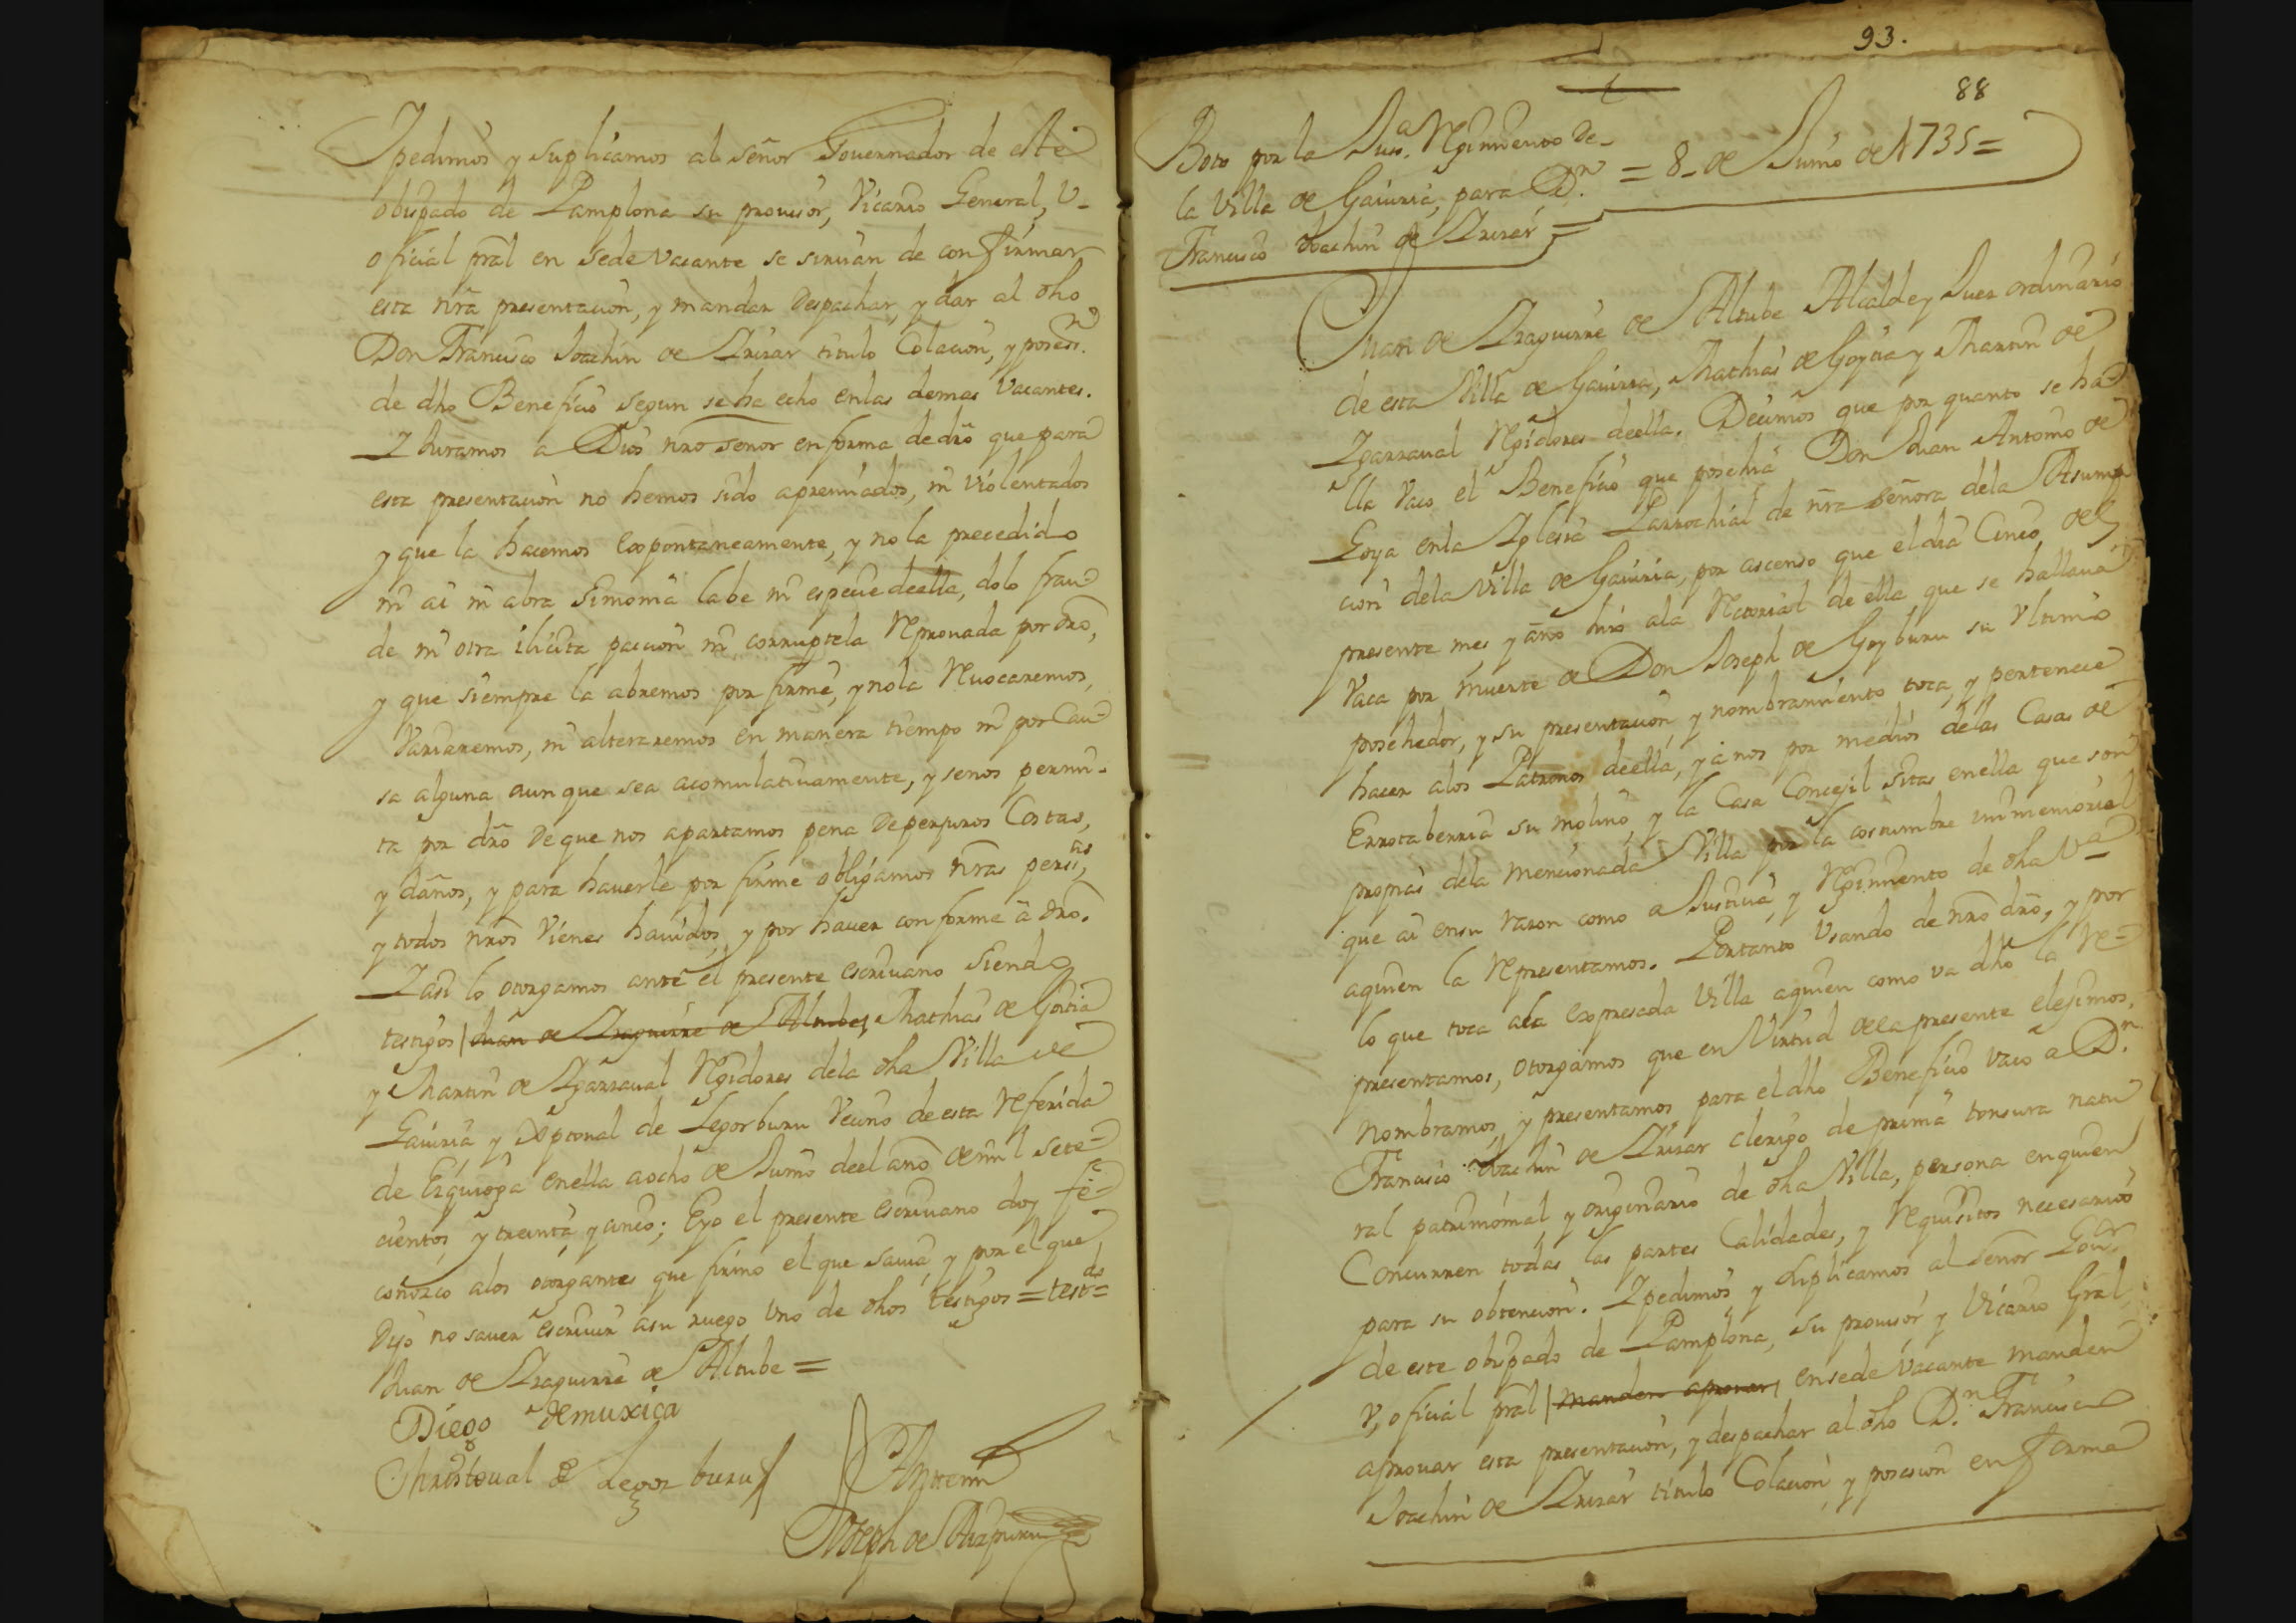 Ypedimos y suplicamos al señor Gouernador de este
obispado de Pamplona su prouisor, Vicario General, V-
oficial pral en sede vacante se siruan de confirmar
esta nrã presentacion, y mandar despachar, y dar al dho
Don Francisco Joachin de Arizar titulo Colacion, y posess.on
de dho Beneficio segun se ha echo enlas demas Vacantes.
Y Juramos a Dios nro señor en forma de dro que para
esta presentacion no hemos sido apremiados, ni violentados
y que la hacemos expontaneamente, y no la precedido
ni ai ni abra simonia labe ni especie deella, dolo frau-
de ni otra ilicita paccion ni corruptela Reprouada por dro,
y que siempre la abremos por firme, y no la Reuocaremos,
Variaremos, ni alteraremos en manera tiempo ni por Cau-
sa alguna aun que sea acomulatiuamente, y senos permi-
ta por dro de que nos apartamos pena de perjuros Costas,
y daños, y para hauerle por firme obligamos nras persas,
y todos nros Vienes hauidos, y por hauer conforme a dro.
Yasi lo otorgamos ante el presente escriuano siendo
testigos Juan de Yraguirre de Altube, Mathias de Goitia
y Martin de Ygarraual Regidores dela dha Villa de
Gauiria y Xptoual de Legorburu Vecino de esta Referida
de Ezquioga enella aocho de Junio deel año de mil sete-
cientos y treinta y cinco; Eyo el presente escriuano doy fe-
conozco alos otorgantes que firmo el que sauia, y por el que
dijo no sauer escriuir asu ruego vno de dhos testigos = testdo=
Juan de Yraguirre de Altube =
Diego de muxica
Christoual de Legorburu
Antemi
Joseph de Aizpuru
93.
88
Boto por la Jusa. Regimiento de-
la Villa de Gauiria, para Dn.
Francisco Joachin de Arizar =
= 8- de Junio de 1735=
Juan de Yraguirre de Altube Alcalde y Juez ordinario
de esta Villa de Gauiria, Mathias de Goytia y Martin de
Ygarraual Regidores deella. Decimos que por quanto se ha-
lla Vaco el Beneficio que posehia Don Juan Antonio de
Goya enla Yglesia Parrochial de nrã señora dela Asump
cion dela Villa de Gauiria, por ascenso que el dia Cinco del
presente mes y año hizo ala Rectorial de ella que se hallaua
Vaca por muerte de Don Joseph de Goyburu su vltimo
posehedor, y su presentacion, y nombramiento toca, y pertenece
hacer alos Patronos deella, y a nos por medios delas Casas de
Errotaberria su molino, y la Casa Concejil sitas enella que son
propias dela mencionada Villa por la costumbre immemorial
que ai ensu razon como a Justicia, y Regimiento de dha Va
aquien la Representamos. Portanto Vsando de nro dro, y por
lo que toca ala expresada Villa aquien como va dho la re-
presentamos, otorgamos que en Virtud dela presente elejimos,
nombramos, y presentamos para el dho Beneficio vaco a Dn.
Francisco Joachin de Arizar clerigo de prima tonsura natu
ral patrimonial, y originario de dha Villa, persona enquien
Concurren todas las partes Calidades, y Requisitos necesarios
para su obtencion. Ypedimos y suplicamos al señor Gour.
de este obispado de Pamplona, su prouisor y Vicario Gral,
V, oficial pral manden aprouar ensede Vacante manden
aprouar esta presentacion, y despachar al dho Dn. Francisco
Joachin de Arizar titulo Colacion, y posesion en forma